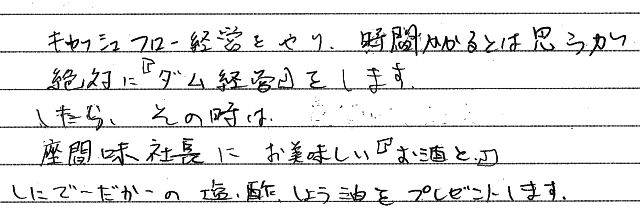 キャッシュフロー経営をやり、時間かかるとは思うが
絶対に『ダム経営』をします。
したら、その時は、
座間味社長に お美味しい『お酒と、』
しにでーだかーの 塩、酢、しょう油をプレゼントします。